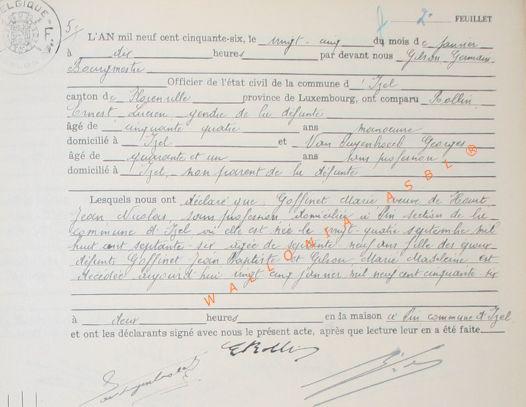 BELGIQUE
2e FEUILLET
5/
L'AN mil neuf cent cinquante-six, le vingt-cinq du mois de janvier
à dix heures par devant nous Gilson Germain
Bourgmestre
Officier de l'état civil de la commune d'Izel
canton de Florenville province de Luxembourg, ont comparu Rollin
Ernest Lucien, gendre de la défunte
âgé de cinquante quatre ans manoeuvre
domicilié à Izel et Van Georges
âgé de quarante et un ans sans profession
domicilié à Izel, non parent de la défunte
Lesquels nous ont déclaré que Goffinet Marie veuve de
Jean Nicolas, sans profession, domiciliée à Pin section de la
commune d'Izel où elle est née le vingt-quatre septembre mil
huit cent septante-six, agée de septante neuf ans fille des
défunts Goffinet Jean Baptiste et Gilson Marie Madeleine est
décédée aujourd'hui vingt cinq janvier mil neuf cent cinquante six
à deux heures en la maison à Pin commune d'Izel
et ont les déclarants signé avec nous le présent acte, après que lecture leur en a été faite.
ERollin
WALLONIA ASBL ®